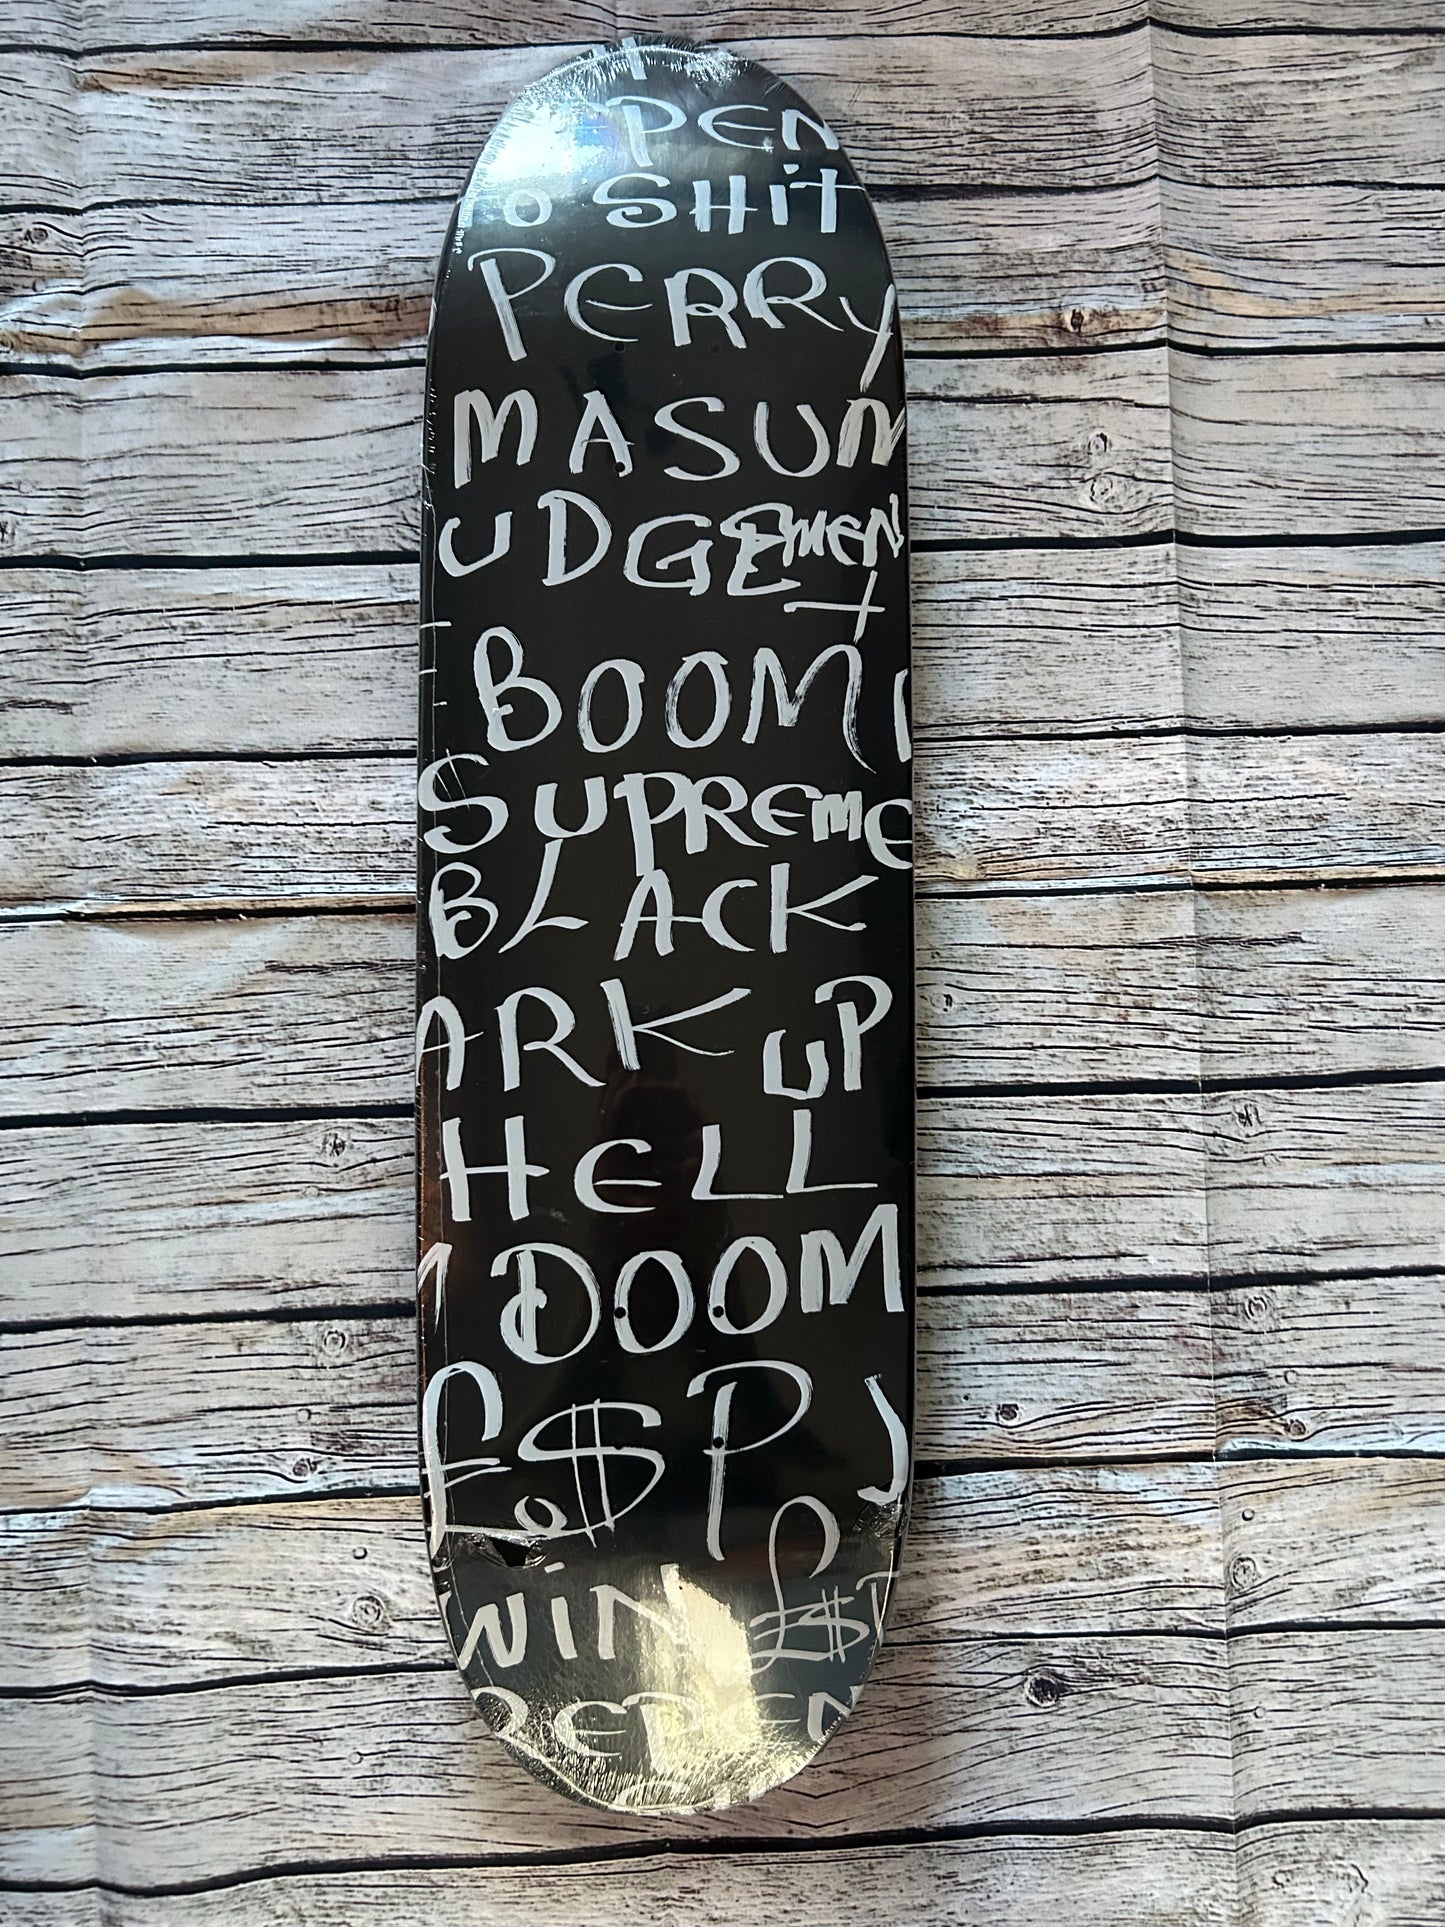 PEN
o SHiT
PERRY
MASUM
UDGEMENT
BOOM
SUPREME
BLACK
ARK UP
HELL
DOOM
£.$ P J
WiN £$P
REPEN